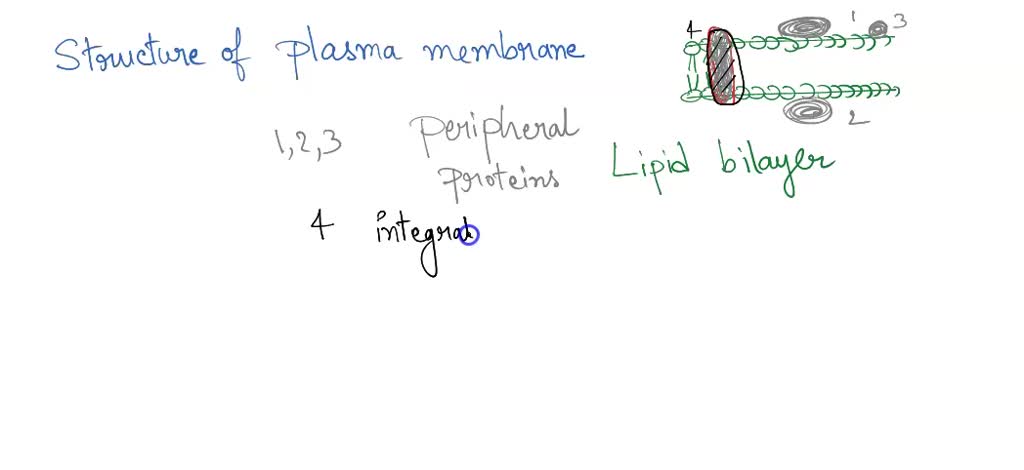 Structure of plasma membrane
4 1 3
2
1,2,3 peripheral
proteins
Lipid bilayer
4 integral